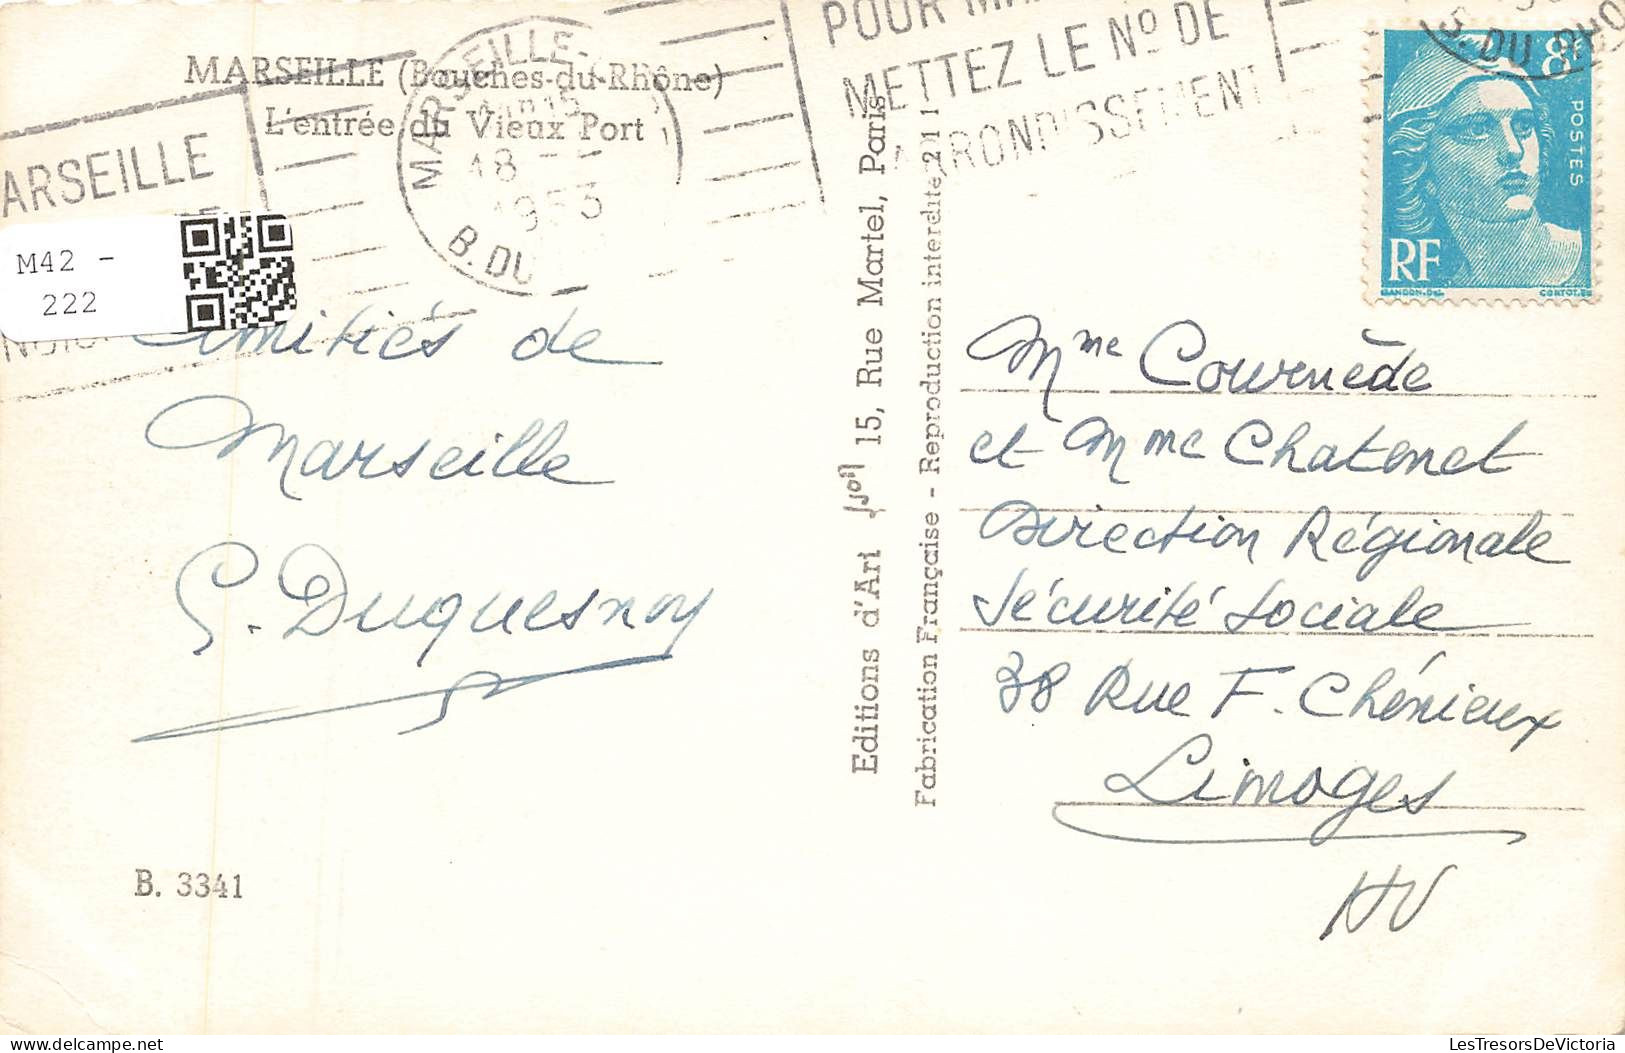 MARSEILLE (Bouches-du-Rhône)
L'entrée du Vieux Port
MARSEILLE
18
1953
B. DU
ARSEILLE
POUR
METTEZ LE Nº DE
ARRONDISSEMENT
B. DU
8F
POSTES
RF
GANDON.DEL.
CORTOT.SC
M42 -
222
Amitiés de
Marseille
G. Duquesnoy
B. 3341
Editions d'Art Yvon 15, Rue Martel, Paris
Fabrication Française - Reproduction interdite
Mme Cournède
et Mme Chatenet
Direction Régionale
Sécurité Sociale
38 Rue F. Chénieux
Limoges
HV
LesTresorsDeVictoria